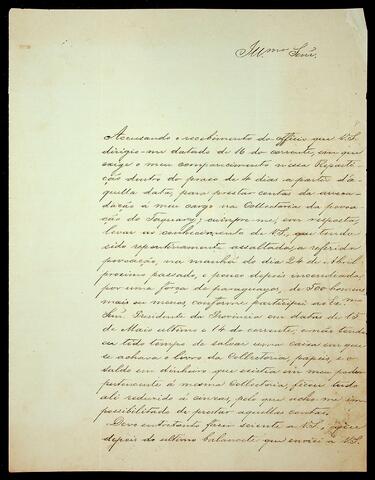 Ill.mo Senr.
Accusando o recebimento do officio que V.S.
dirigio-me datado de 16 do corrente, em que
exige o meu comparecimento nessa Reparti-
ção dentro do praso de 4 dias a partir d'a-
quella data, para prestar contas da arreca-
dação à meu cargo na Collectoria da povoa-
ção do Taquary; cumpre-me, em resposta,
levar ao conhecimento de V.S., que tendo
sido repentinamente assaltada a referida
povoação, na manhã do dia 24 de Abril
proximo passado, e pouco depois incendiada,
por uma força de paraguayos, de 500 homens
mais ou menos, conforme participei ao Ex.mo
Snr. Presidente da Provincia em datas de 15
de Maio ultimo e 14 do corrente; e não tendo
eu tido tempo de salvar uma caixa em que
se achava o livro da Collectoria, papeis, e o
saldo em dinheiro que existia em meu poder
pertencente á mesma Collectoria, ficou tudo
ali redusido á cinsas, pelo que acho-me im-
possibilitado de prestar aquellas contas.
Devo entretanto fazer sciente a V.S., que
depois do ultimo balancete que enviei a V.S.